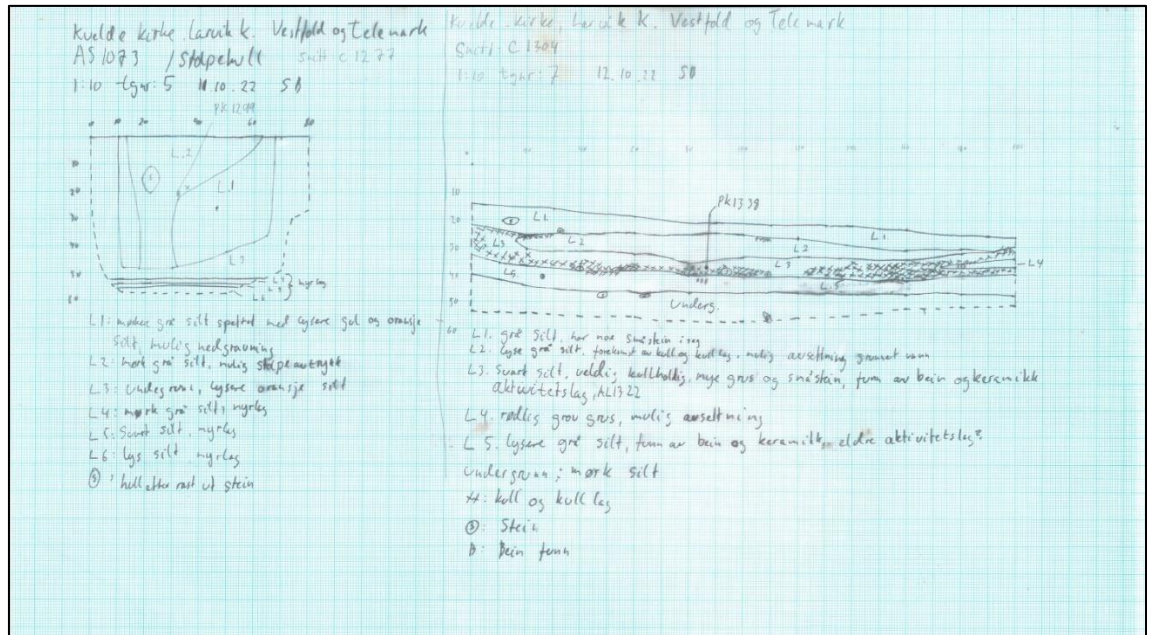 Kvelde kirke. Larvik k. Vestfold og Telemark
AS 1073 / Stolpehull Snitt C 1277
1:10 tgnr: 5 11.10.22 SD
PK1299
0 10 20 40 60 80
10
20
30
40
50
60
L.2
L1
L3
L4
L5
L6
myrlag
L1: mørkere grå silt spettet med lysere gul og oransje
silt, mulig nedgravning
L2: mørk grå silt, mulig stolpeavtrykk
L3: Undergrunn, lysere oransje silt
L4: mørk grå silt, myrlag
L5: Svart silt, myrlag
L6: lys silt myrlag
hull etter rast ut stein
Kvelde kirke, Larvik k. Vestfold og Telemark
Snitt: C 1304
1:10 tgnr: 7 12.10.22 SD
10
20
30
40
50
60
PK1338
L1
L1
L2
L2
L3
L3
L4
L5
L5
Underg.
L1. grå silt, har noe småstein i seg
L2. lyse grå silt, forekomst av kull og kull lag, mulig avsettning grunnet vann
L3. Svart silt, veldig kullholdig, mye grus og småstein, funn av bein og keramikk
aktivitetslag, AL1322
L4. rødlig grov grus, mulig avsettning
L5. lysere grå silt, funn av bein og keramikk, eldre aktivitetslag?
Undergrunn; mørk silt
XX: kull og kull lag
S: Stein
B: Bein funn